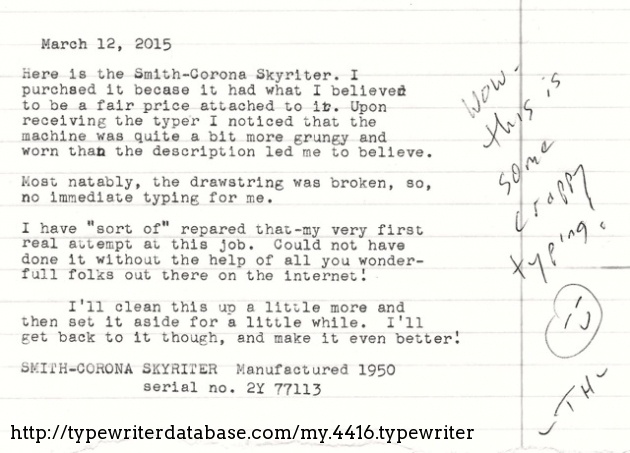 March 12, 2015
Here is the Smith-Corona Skyriter. I
purchsed it becase it had what I believed
to be a fair price attached to it. Upon
receiving the typer I noticed that the
machine was quite a bit more grungy and
worn than the description led me to believe.
Most natably, the drawstring was broken, so,
no immediate typing for me.
I have "sort of" repared that-my very first
real attempt at this job.  Could not have
done it without the help of all you wonder-
full folks out there on the internet!
I'll clean this up a little more and
then set it aside for a little while.  I'll
get back to it though, and make it even better!
SMITH-CORONA SKYRITER  Manufactured 1950
serial no. 2Y 77113
Wow-
this is
some
crappy
typing.
-TH-
http://typewriterdatabase.com/my.4416.typewriter